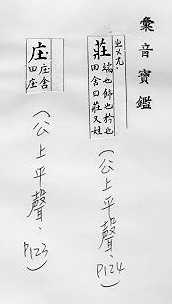 彙音寶鑑
莊
ㄓㄨㄤ
端也飾也於也
田舍曰莊又姓
(公上平聲、P124)
庄
庄舍
田庄
(公上平聲、P123)